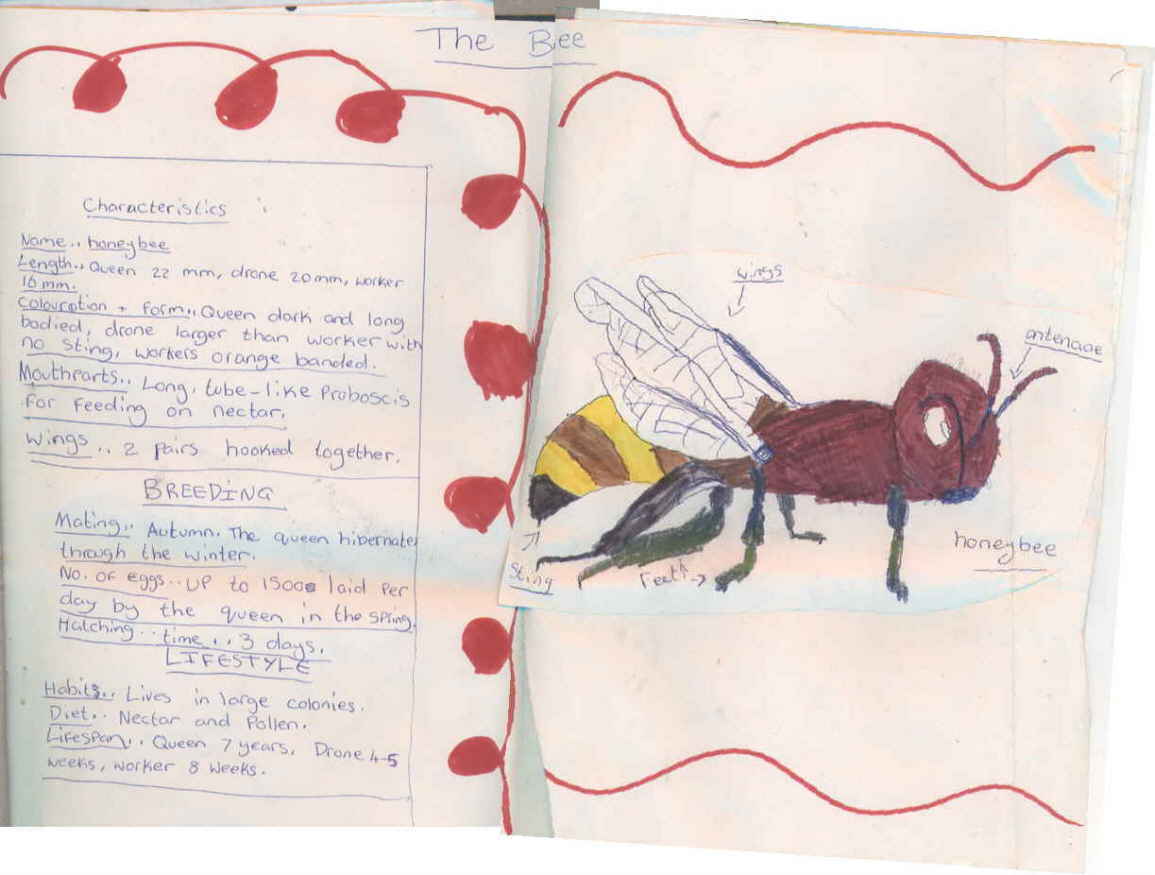 The Bee
Characteristics
Name.. honeybee
Length.. Queen 22 mm, drone 20mm, worker
16 mm.
Colouration + form.. Queen dark and long
bodied, drone larger than worker with
no sting, workers orange banded.
Mouthparts.. Long, tube-like Proboscis
for feeding on nectar.
Wings .. 2 pairs hooked together.
BREEDING
Mating.. Autumn. The queen hibernates
through the winter.
No. of eggs.. UP to 1500 laid Per
day by the queen in the spring.
Hatching.. time .. 3 days.
LIFESTYLE
Habits.. Lives in large colonies.
Diet.. Nectar and Pollen.
Lifespan.. Queen 7 years, Drone 4-5
weeks, worker 8 weeks.
wings
antenaae
honeybee
Feet
Sting